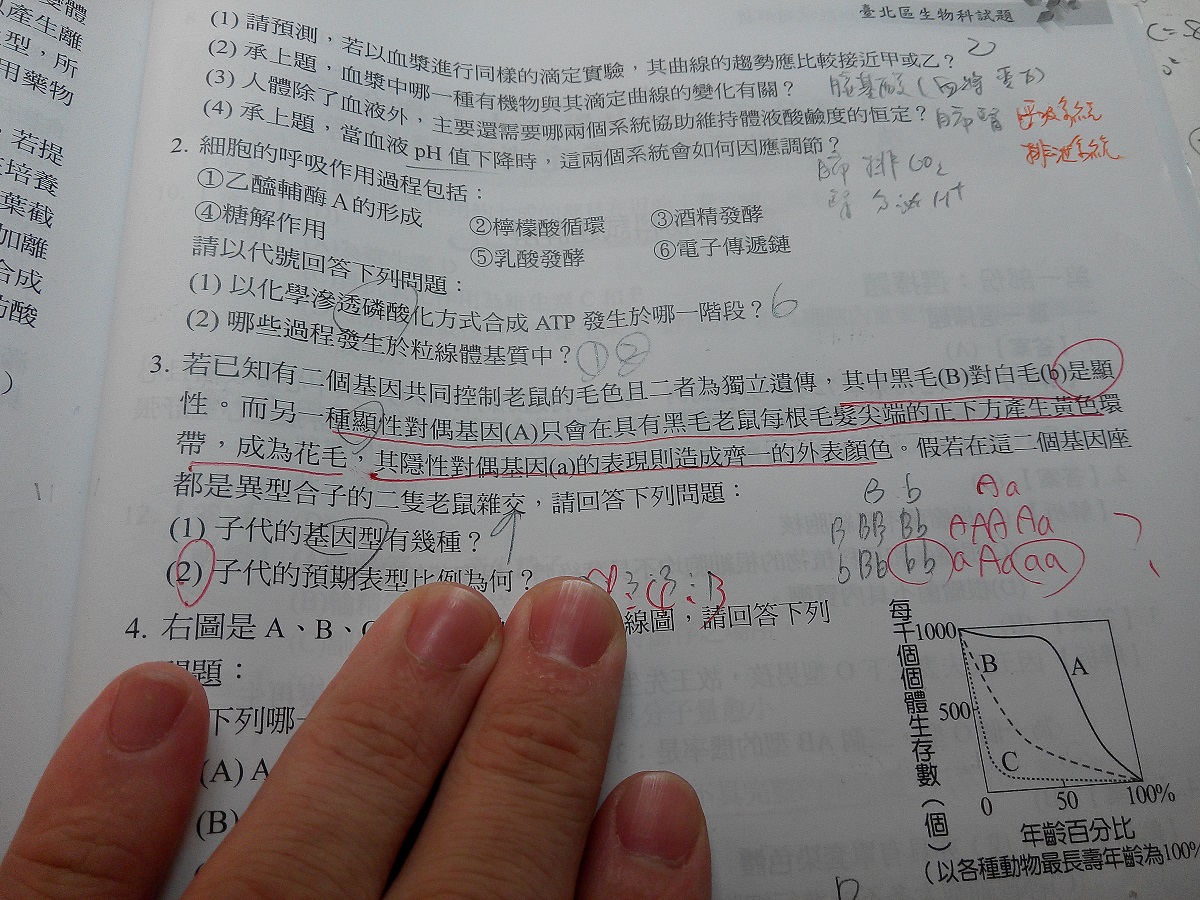 臺北區生物科試題
(1) 請預測，若以血漿進行同樣的滴定實驗，其曲線的趨勢應比較接近甲或乙？ 乙
(2) 承上題，血漿中哪一種有機物與其滴定曲線的變化有關？
(3) 人體除了血液外，主要還需要哪兩個系統協助維持體液酸鹼度的恒定？ 肺 腎 呼吸系統
(4) 承上題，當血液 pH 值下降時，這兩個系統會如何因應調節？ 排泄系統
肺 排 CO₂
腎 分泌 H⁺
2. 細胞的呼吸作用過程包括：
①乙醯輔酶 A 的形成 ②檸檬酸循環 ③酒精發酵
④糖解作用 ⑤乳酸發酵 ⑥電子傳遞鏈
請以代號回答下列問題：
(1) 以化學滲透磷酸化方式合成 ATP 發生於哪一階段？ 6
(2) 哪些過程發生於粒線體基質中？ ① ②
3. 若已知有二個基因共同控制老鼠的毛色且二者為獨立遺傳，其中黑毛(B)對白毛(b)是顯
性。而另一種顯性對偶基因(A)只會在具有黑毛老鼠每根毛髮尖端的正下方產生黃色環
帶，成為花毛，其隱性對偶基因(a)的表現則造成齊一的外表顏色。假若在這二個基因座
都是異型合子的二隻老鼠雜交，請回答下列問題：
B b Aa
(1) 子代的基因型有幾種？ B BB Bb A AA Aa
(2) 子代的預期表型比例為何？ b Bb bb a Aa aa
4. 右圖是 A、B、 線圖，請回答下列
題：
下列哪一
(A) A
(B)
每千個個體生存數（個）
1000
500
0 50 100%
A
B
C
年齡百分比
(以各種動物最長壽年齡為100%
產生離
型，所
用藥物
，若提
培養
葉截
加離
合成
肪酸
)